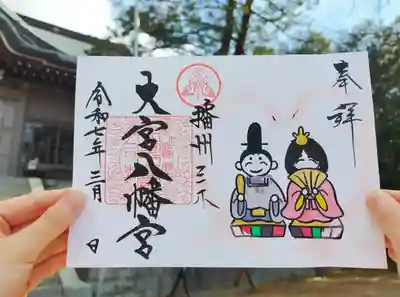 奉拝
播州三木
大宮八幡宮
令和七年三月 日